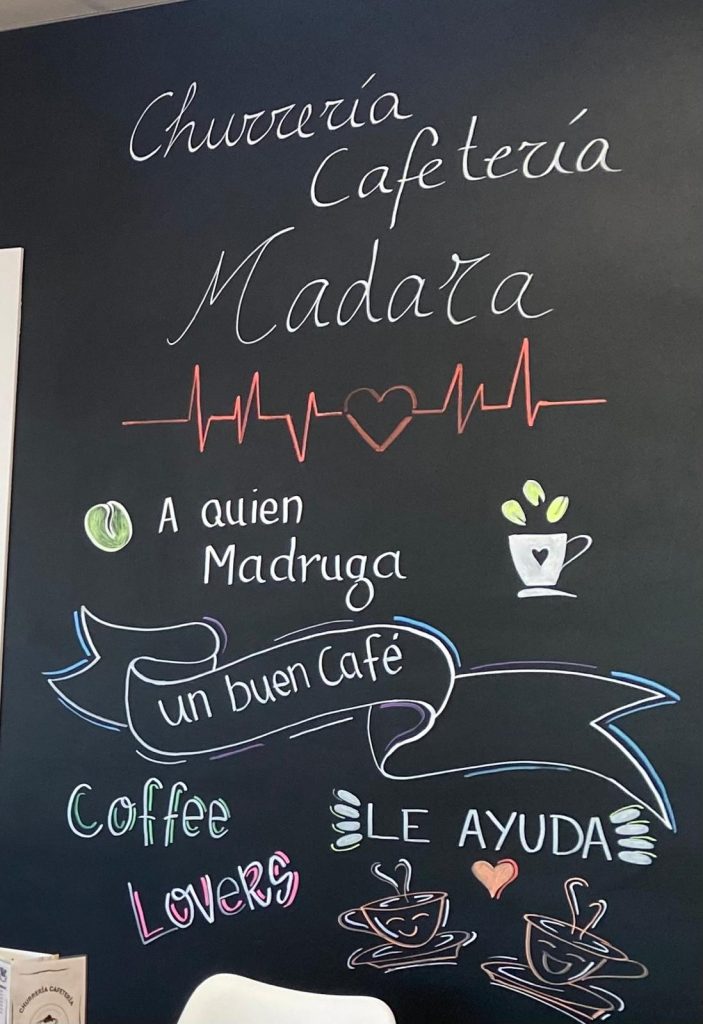 Churrería
Cafetería
Madara
A quien
Madruga
un buen Café
Coffee
Lovers
LE AYUDA
CHURRERÍA CAFETERÍA